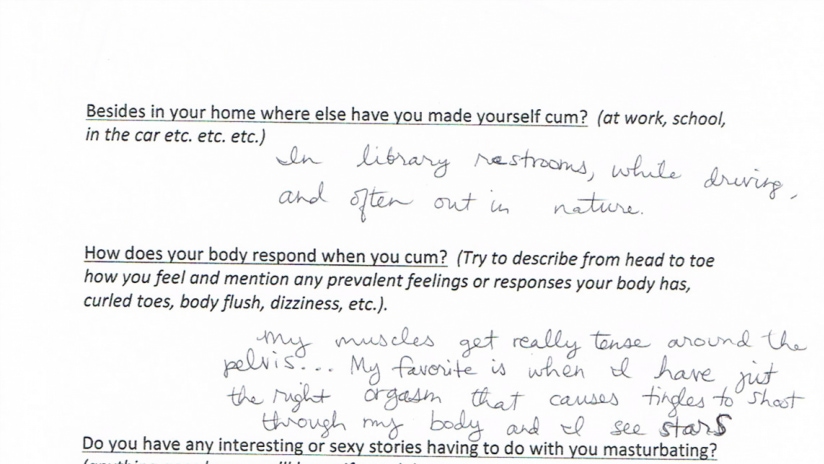 Besides in your home where else have you made yourself cum? (at work, school,
in the car etc. etc. etc.)
In library restrooms, while driving,
and often out in nature.
How does your body respond when you cum? (Try to describe from head to toe
how you feel and mention any prevalent feelings or responses your body has,
curled toes, body flush, dizziness, etc.).
My muscles get really tense around the
pelvis... My favorite is when I have just
the right orgasm that causes tingles to shoot
through my body and I see stars
Do you have any interesting or sexy stories having to do with you masturbating?